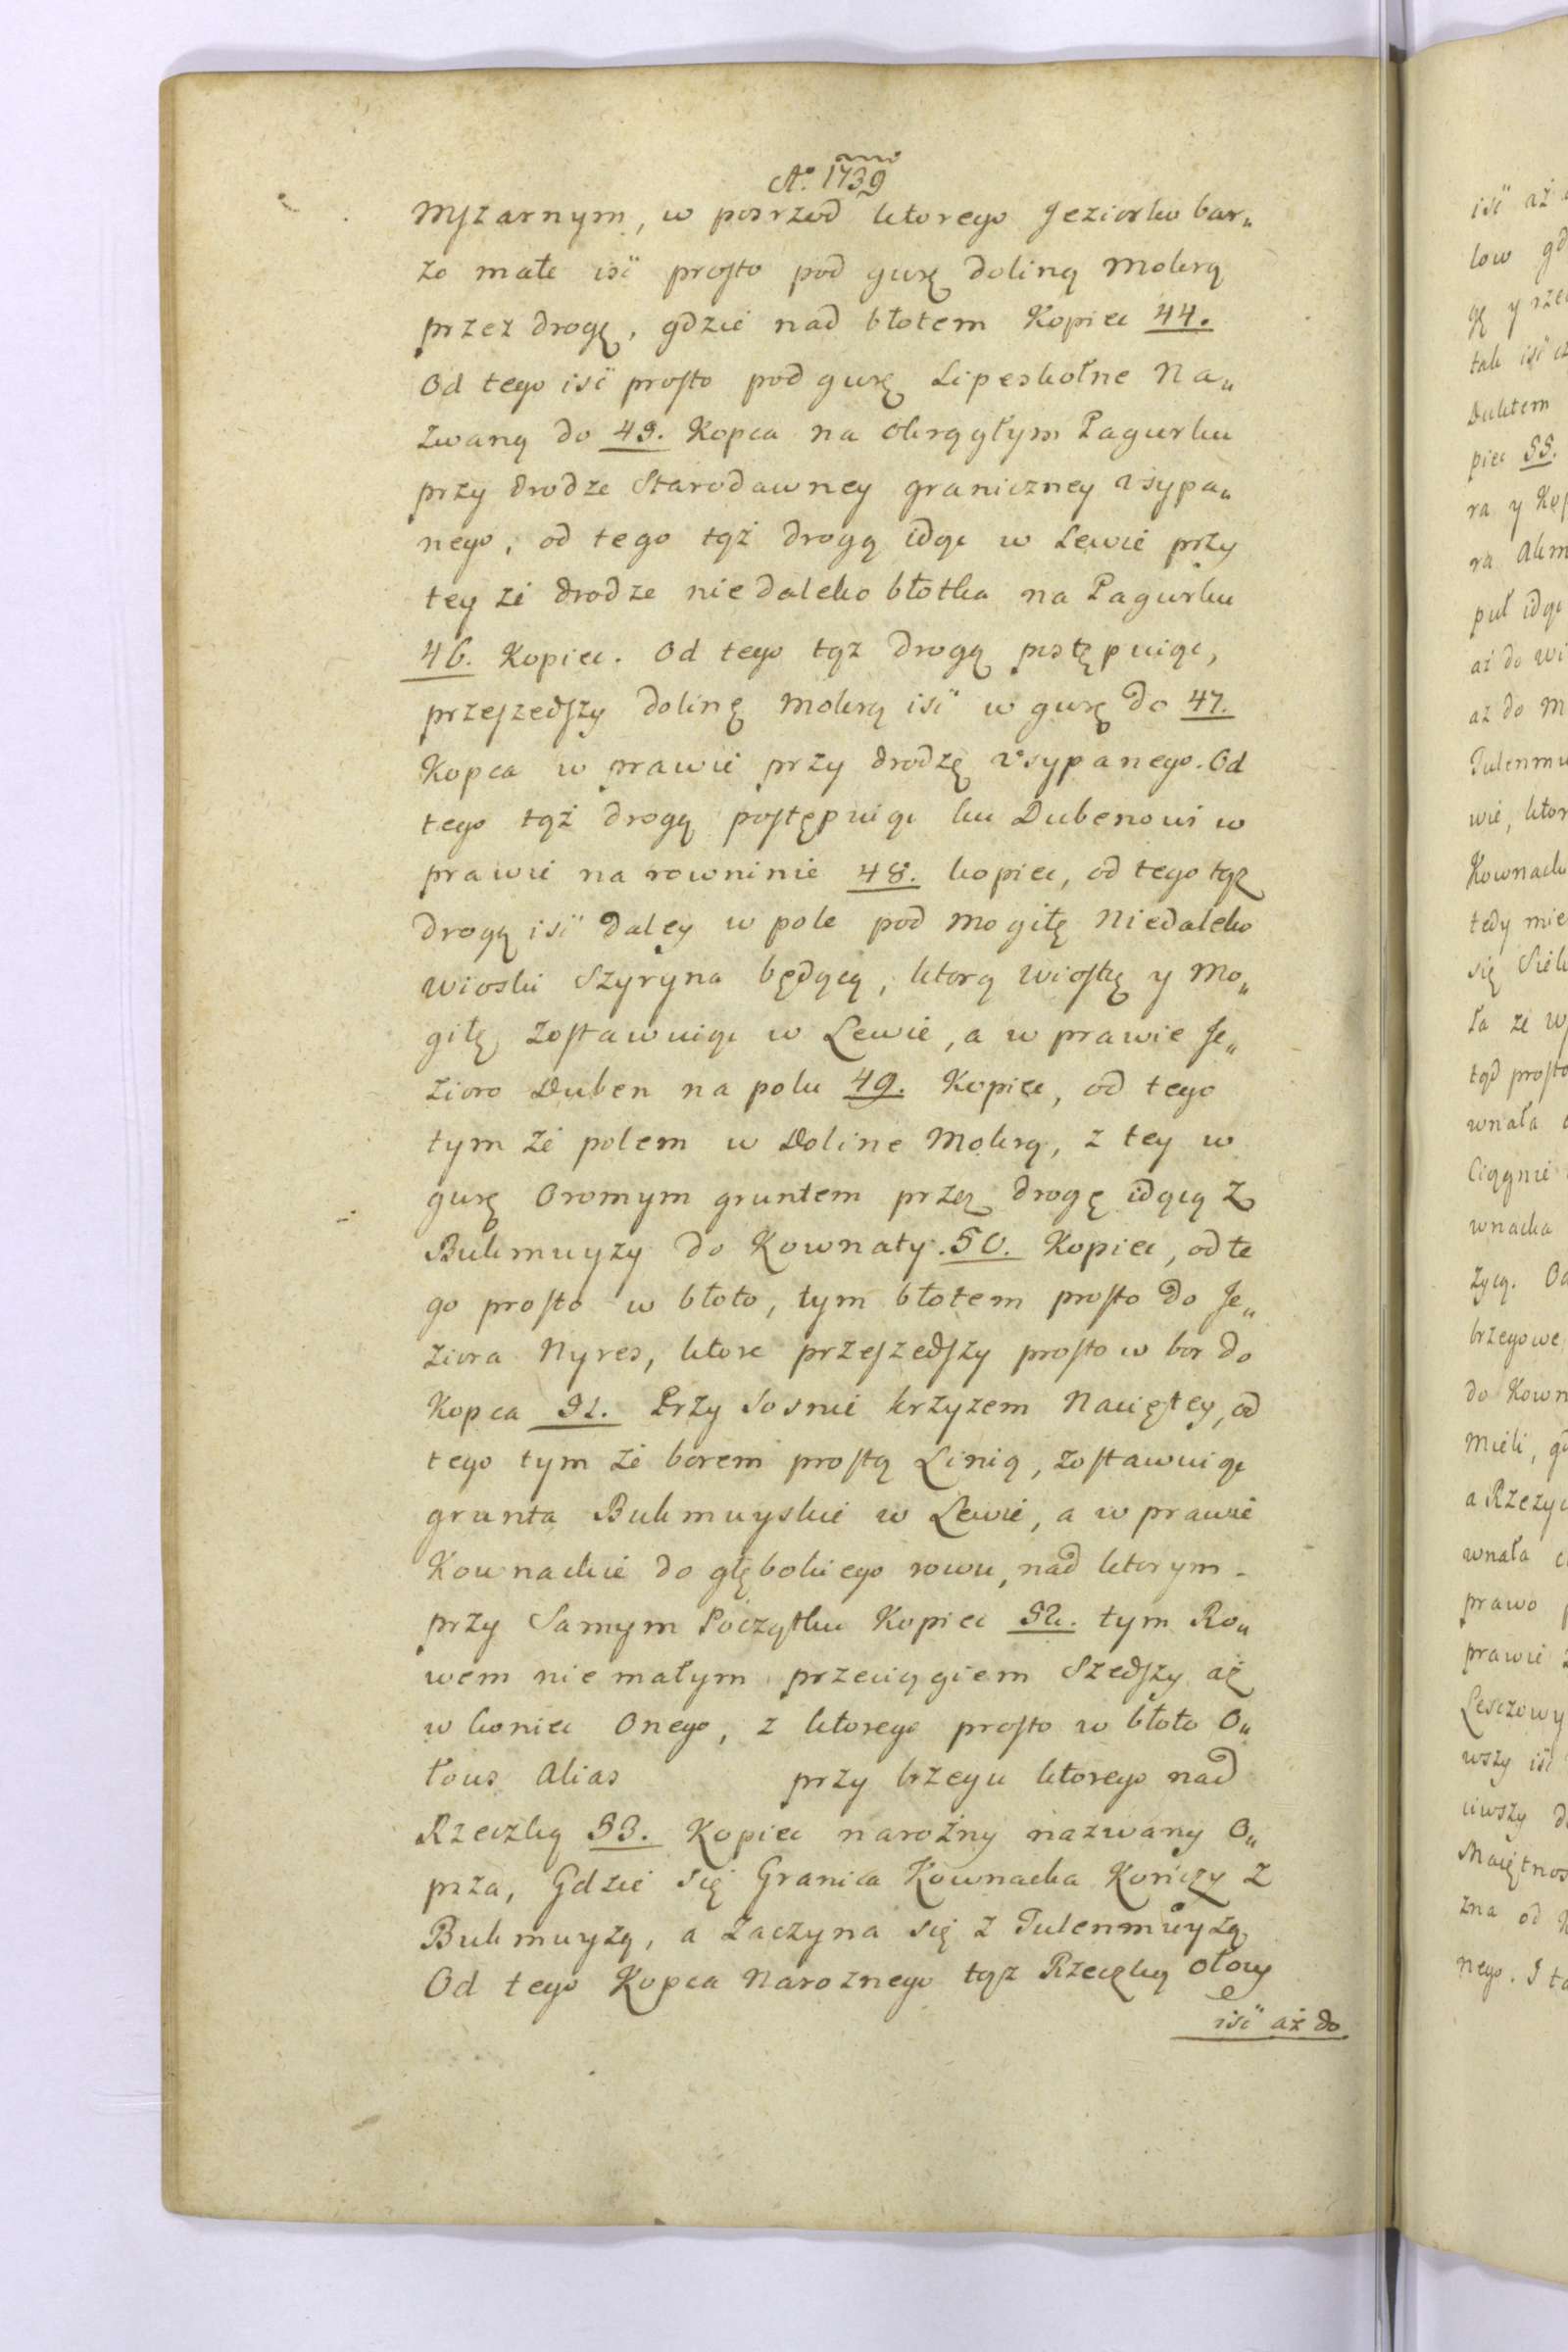 Aº. 1739
Mszarnym, w posrzod ktorego Jeziorko bar„
zo małe isć prosto pod gurę doliną Mokrą
przez drogę, gdzie nad błotem Kopiec 44.
Od tego isć prosto pod gurę Lipeskolne Na„
zwaną do 45. Kopca na okrągłym Pagurku
przy drodze Starodawney graniczney vsypa„
nego, od tego tąż drogą idąc w Lewie przy
tey że drodze niedaleko błotka na Pagurku
46. Kopiec. Od tego tąz drogą pstępuiąc,
przeszedszy dolinę Mokrą isć w gurę do 47.
Kopca w prawie przy drodzę vsypanego. Od
tego tąż drogą postępuiąc ku Dubenowi w
prawie na rowninie 48. kopiec, od tego tąz
drogą isć daley w pole pod Mogiłę Niedaleko
wioski Szyryna będącą, ktorą wioskę y Mo„
giłę zostawuiąc w Lewie, a w prawie Je„
zioro Duben na polu 49. Kopiec, od tego
tym że polem w Doline Mokrą, z tey w
gurę Oromym gruntem przez drogę idącą z
Bukmuyzy do Kownaty. 50. Kopiec, od te
go prosto w błoto, tym błotem prosto do Je„
ziora Nyres, ktore przeszedszy prosto w bor do
Kopca 51. Przy Sosnie krzyzem Nacięstey, od
tego tym że borem prostą Linią, zostawuiąc
grunta Bukmuyskie w Lewie, a w prawie
Kownackie do głębokiego rowu, nad ktorym
przy Samym Początku Kopiec 52. tym Ro„
wem nie małym przeciągiem Szedszy aż
w koniec Onego, z ktorego prosto w błoto O„
łous Alias przy brzegu ktorego nad
Rzeczką 53. Kopiec narożny nazwany O„
prza, Gdzie się Granica Kownacka Kończy z
Bukmuyzą, a Zaczyna się z Tulenmuyżą
Od tego Kopca Narożnego tąz Rzeczką ołowe
isć aż do